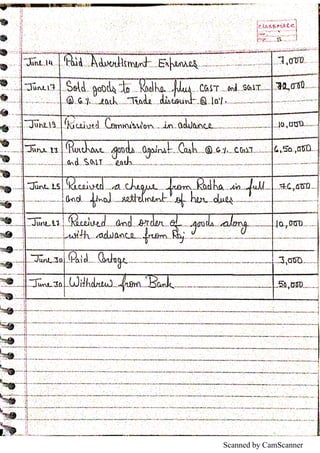 CLASSMATE
June 14 Paid Advertisment Expenses 7,000
June 17 Sold goods to Radha plus CGST and SGST
@ 6% each Trade discount @ 10%.
June 19 Received Commission in advance 10,000
Purchase goods against Cash @ 6% CGST 6,50,000
and SGST each
June 25 Received a cheque from Radha in full 76,000
and final settelment of her dues
Received and order of goods along 10,000
with advance from Raj
June 30 Paid Cartage 3,000
June 30 Withdrew from Bank 50,000
Scanned by CamScanner